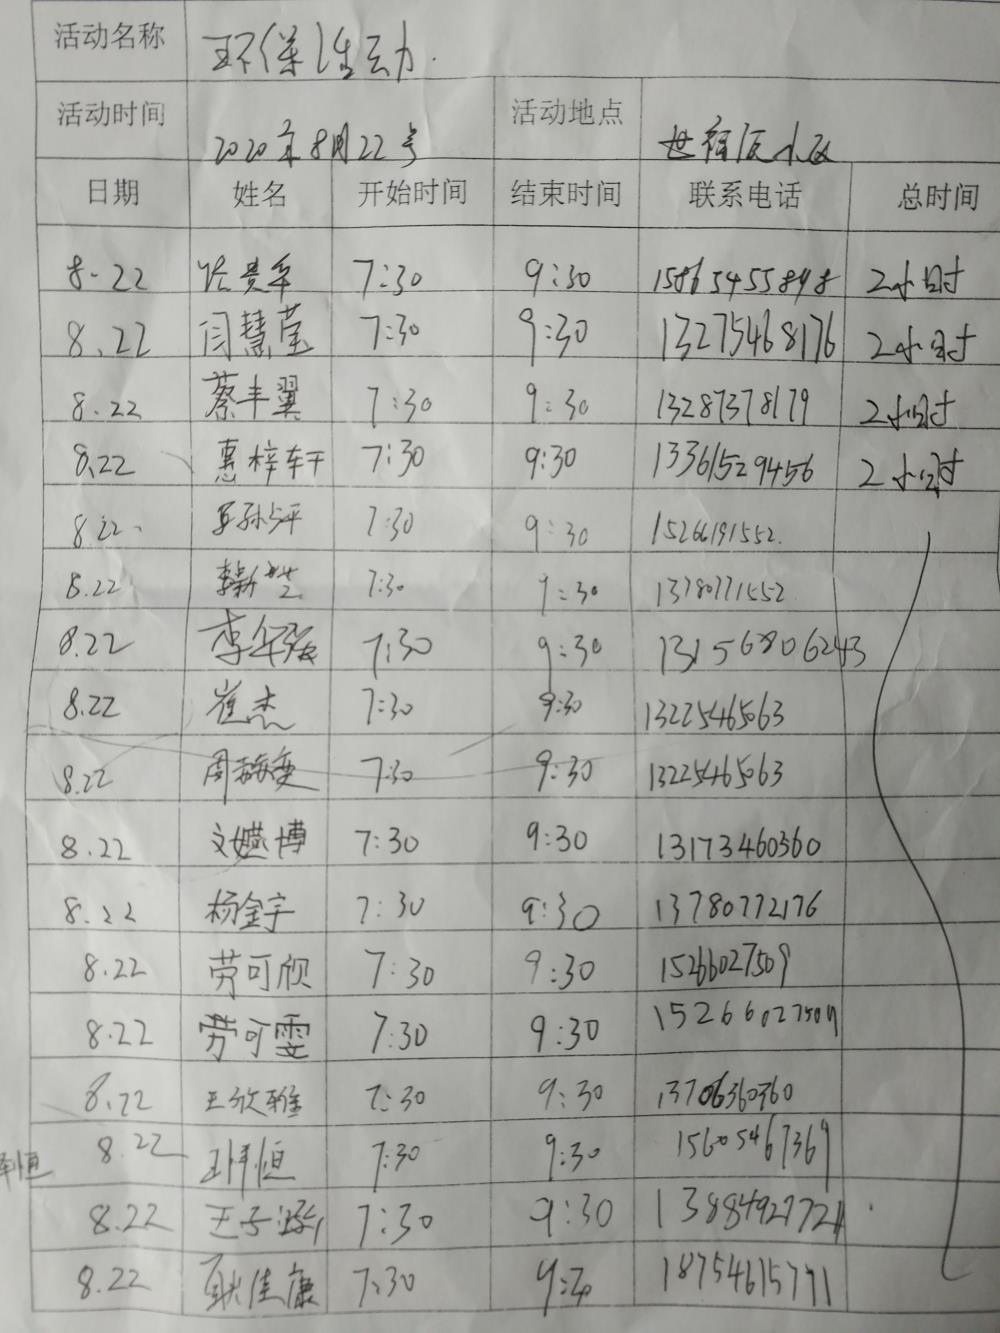 活动名称 环保活动.
活动时间 2020年8月22号 活动地点
日期 姓名 开始时间 结束时间 联系电话 总时间
8.22 7:30 9:30 15865455898 2小时
8.22 闫慧莹 7:30 9:30 13275468176 2小时
8.22 蔡丰翼 7:30 9:30 13287378179 2小时
8.22 惠梓轩 7:30 9:30 13361529456 2小时
8.22 7:30 9:30 15266191552
8.22 7:30 9:30 13780771552
8.22 7:30 9:30 13156806243
8.22 崔杰 7:30 9:30 13225465063
8.22 7:30 9:30 13225465063
8.22 文嬿博 7:30 9:30 13173460360
8.22 杨金宇 7:30 9:30 13780772176
8.22 劳可欣 7:30 9:30 15266027509
8.22 劳可雯 7:30 9:30 15266027509
8.22 王欣雅 7:30 9:30 13706360360
8.22 7:30 9:30 15605467369
8.22 7:30 9:30 13884927721
8.22 耿佳康 7:30 9:30 18754615771